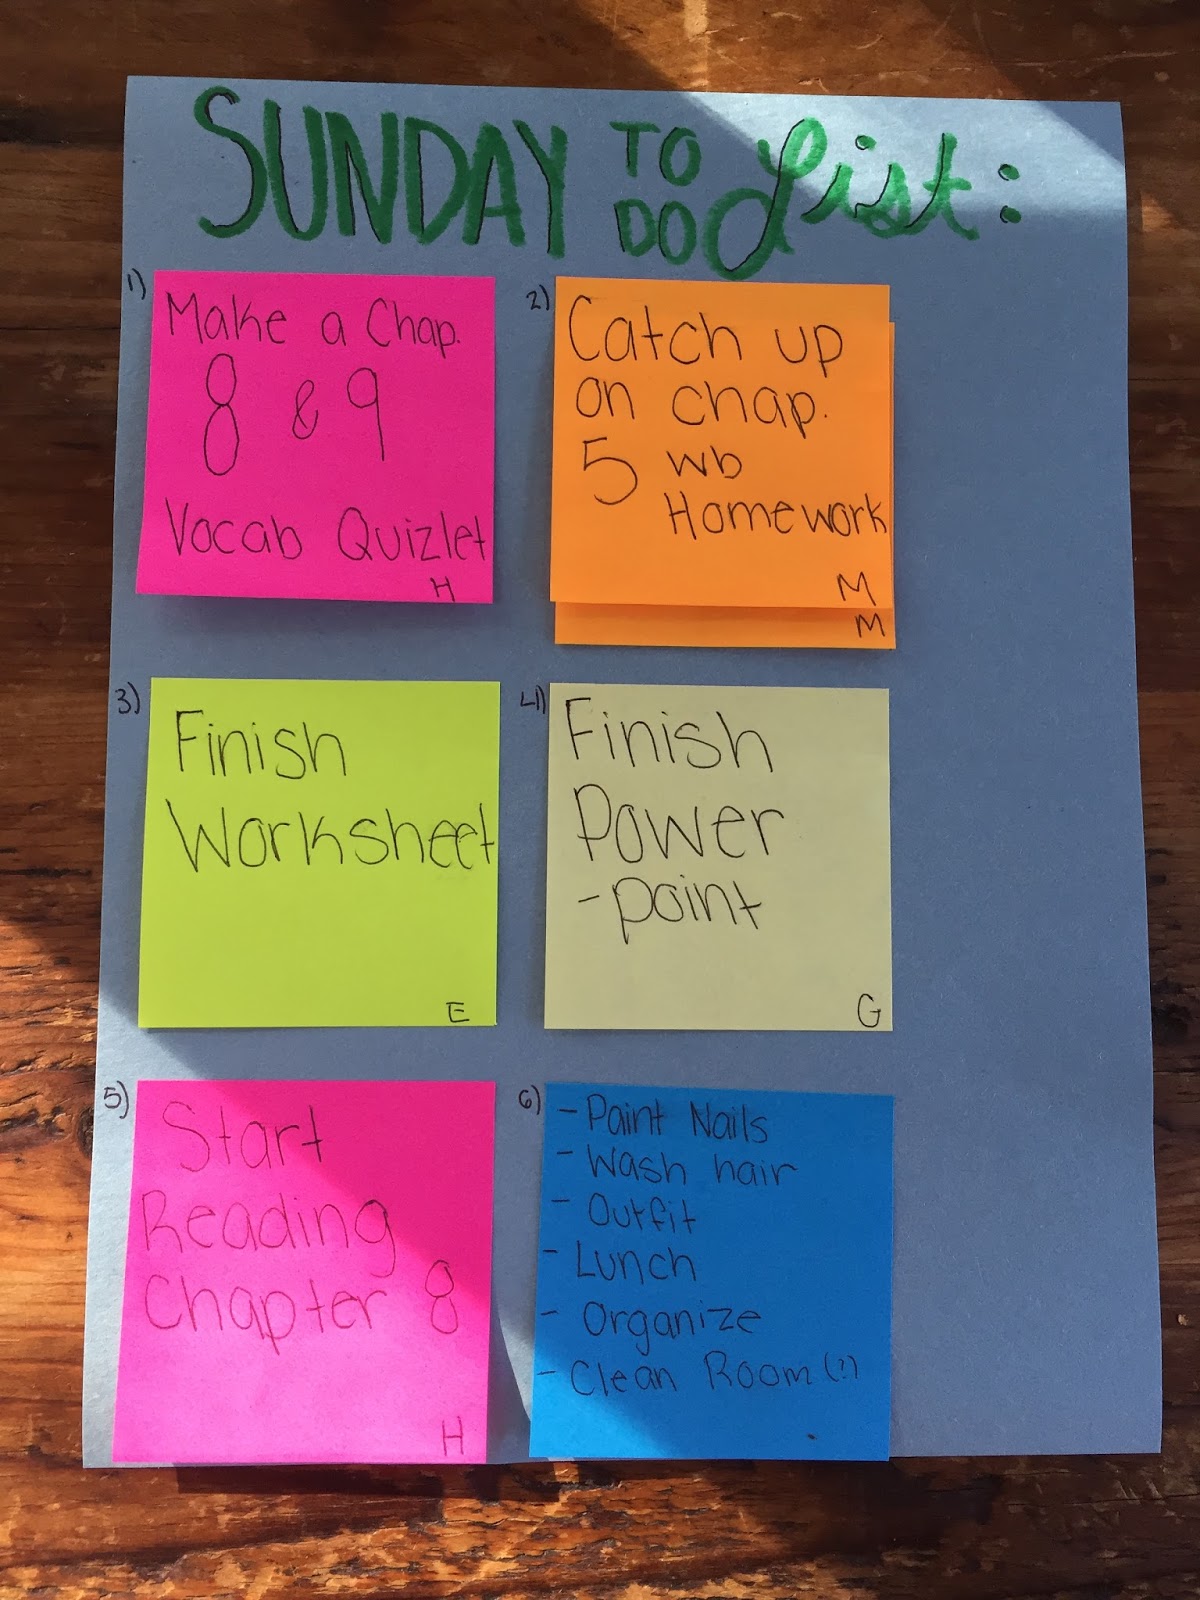 SUNDAY TO DO List:
1)
Make a Chap.
8 & 9
Vocab Quizlet
H
2)
Catch up
on chap.
5 wb
Homework
M
M
3)
Finish
Worksheet
E
4)
Finish
Power
-point
G
5)
Start
Reading
Chapter 8
H
6)
- Paint Nails
- Wash hair
- Outfit
- Lunch
- Organize
- Clean Room (?)